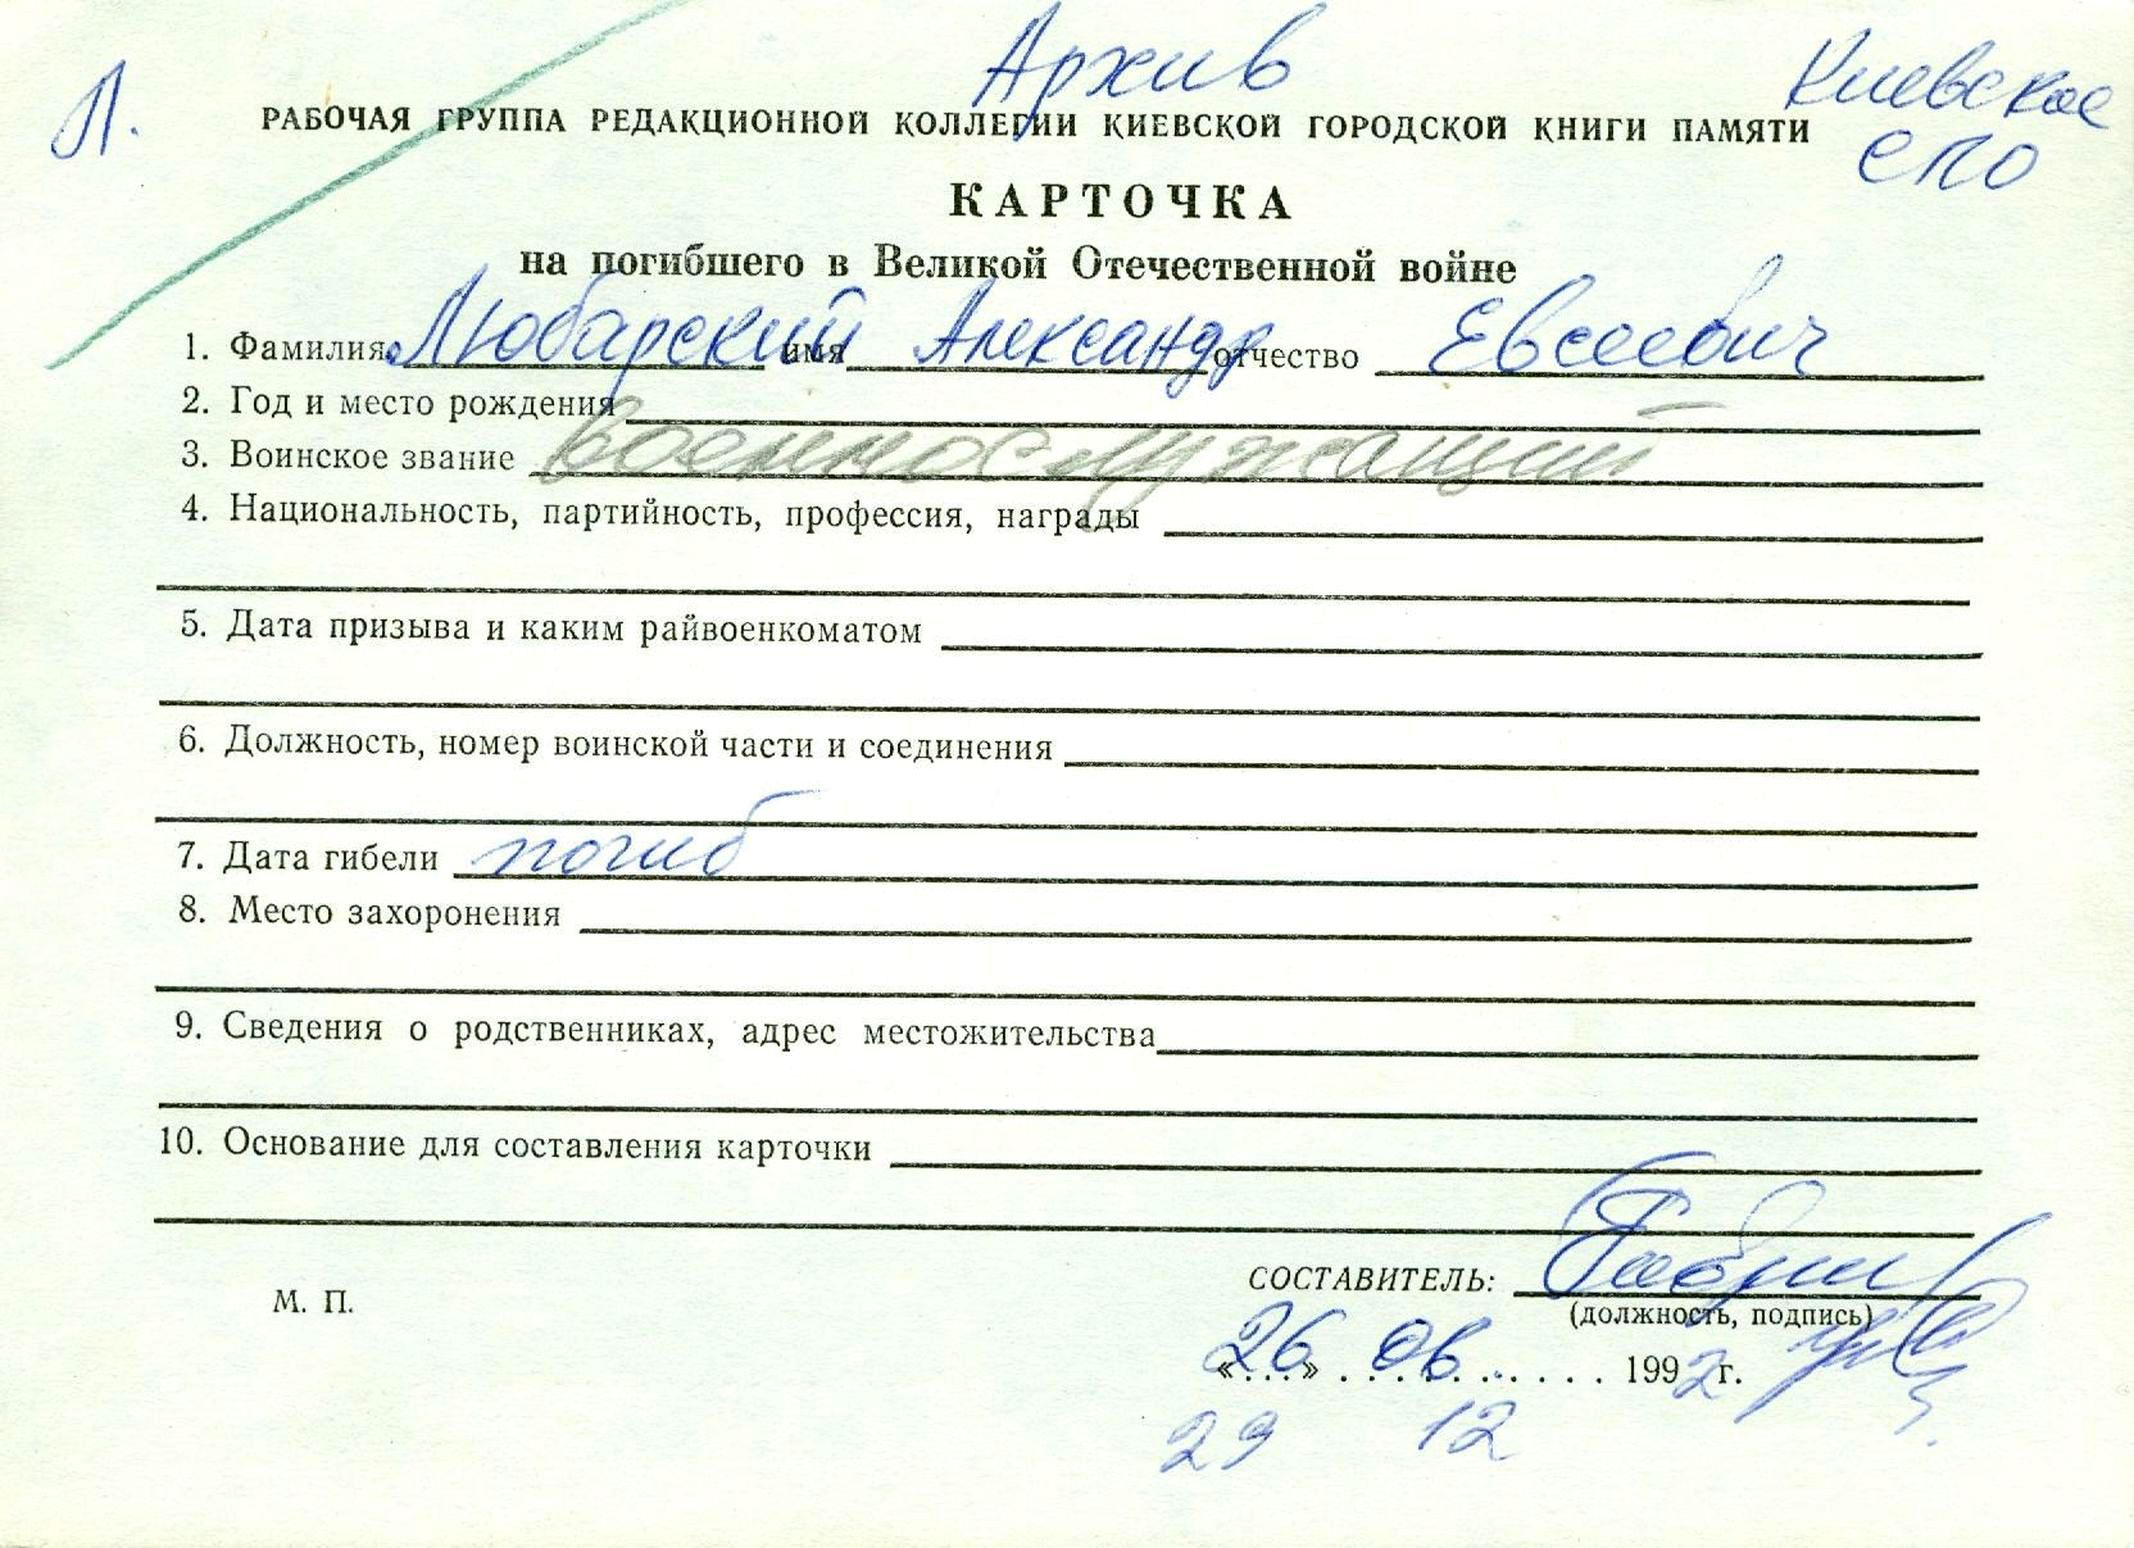 Архив
Киевское
СПО
Л.
РАБОЧАЯ ГРУППА РЕДАКЦИОННОЙ КОЛЛЕГИИ КИЕВСКОЙ ГОРОДСКОЙ КНИГИ ПАМЯТИ
КАРТОЧКА
на погибшего в Великой Отечественной войне
1. Фамилия Любарский имя Александр отчество Евсеевич
2. Год и место рождения
3. Воинское звание военнослужащий
4. Национальность, партийность, профессия, награды
5. Дата призыва и каким райвоенкоматом
6. Должность, номер воинской части и соединения
7. Дата гибели погиб
8. Место захоронения
9. Сведения о родственниках, адрес местожительства
10. Основание для составления карточки
М. П.
СОСТАВИТЕЛЬ:
(должность, подпись)
«26» 08 1992 г.
29 12